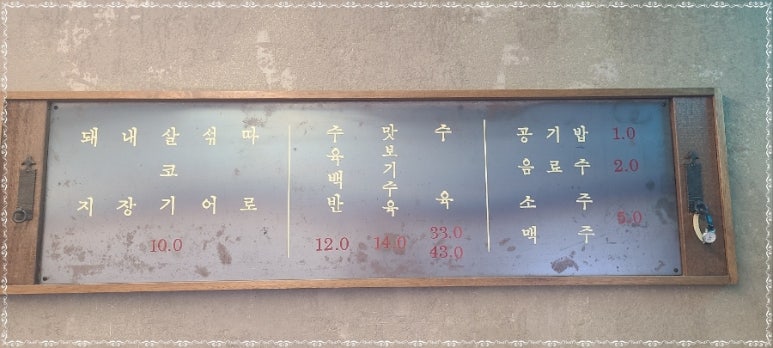 돼지
내장
살코기
섞어
따로
10.0
수육백반
12.0
맛보기수육
14.0
수육
33.0
43.0
공기밥 1.0
음료수 2.0
소주
맥주
5.0